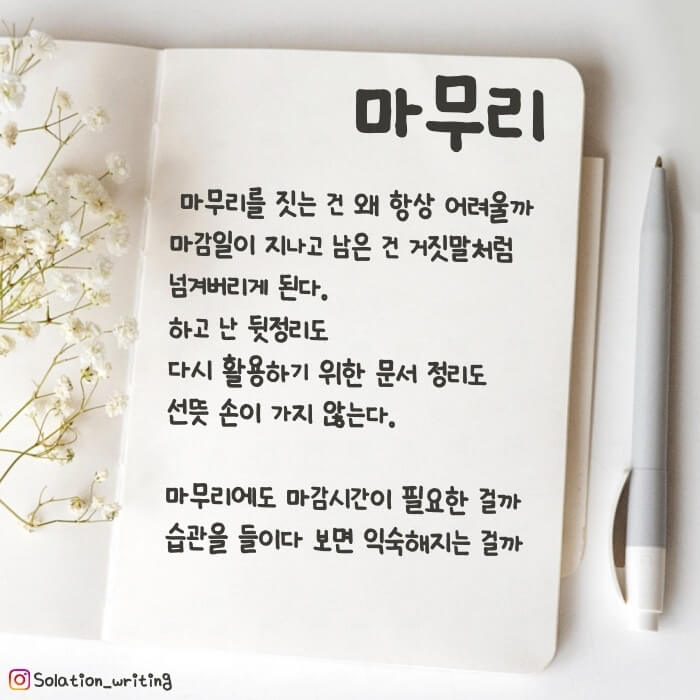 마무리
마무리를 짓는 건 왜 항상 어려울까
마감일이 지나고 남은 건 거짓말처럼
넘겨버리게 된다.
하고 난 뒷정리도
다시 활용하기 위한 문서 정리도
선뜻 손이 가지 않는다.
마무리에도 마감시간이 필요한 걸까
습관을 들이다 보면 익숙해지는 걸까
Solation_writing